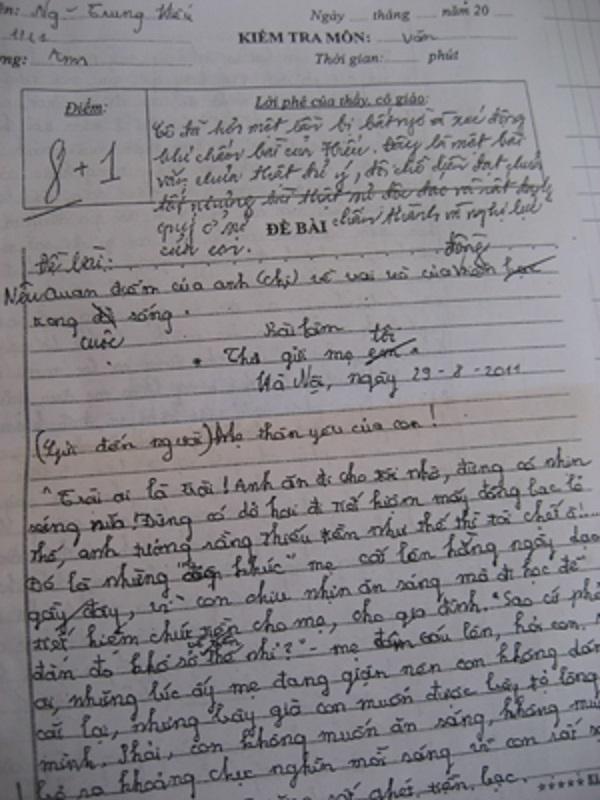 ên: Ng - Trung Hiếu Ngày ..... tháng ..... năm 20 .....
11L1 KIỂM TRA MÔN: Văn
ng: Ams Thời gian: phút
Điểm: Lời phê của thầy, cô giáo:
8 + 1
Cô đã hơn một lần bị bất ngờ và xúc động
khi chấm bài của Hiếu. Đây là một bài
văn chưa thật hề ý, đôi chỗ dẫn dắt chưa
tốt nhưng
quý ở sự chân thành và nghị lực
của con.
ĐỀ BÀI
Đề bài:
Nêu quan điểm của anh (chị) về vai trò của đồng
trong cuộc sống.
Bài làm
Thư gửi mẹ tôi
Hà Nội, ngày 29-8-2011
(Gửi đến người) Mẹ thân yêu của con!
"Trời ơi là trời! Anh ăn đi cho tôi nhờ, đừng có nhịn
sáng nữa! Đừng có dở hơi đi tiết kiệm mấy đồng bạc lẻ
thế, anh tưởng rằng thiếu tiền như thế thì tôi chết à!...
Đó là những "khúc" mẹ cất lên hằng ngày dạo
gần đây, vì con chịu nhịn ăn sáng mà đi học để
tiết kiệm chút tiền cho mẹ, cho gia đình. "Sao cứ phả
đàn đó khổ sở thế nhỉ?" - mẹ cáu lên, hỏi con.
ơi, những lúc ấy mẹ đang giận nên con không dám
cãi lại, nhưng bây giờ con muốn được bày tỏ lòng
mình. Phải, con không muốn ăn sáng, không mu
bỏ ra khoảng chục nghìn mỗi sáng vì con rất s
ghét tiền bạc.